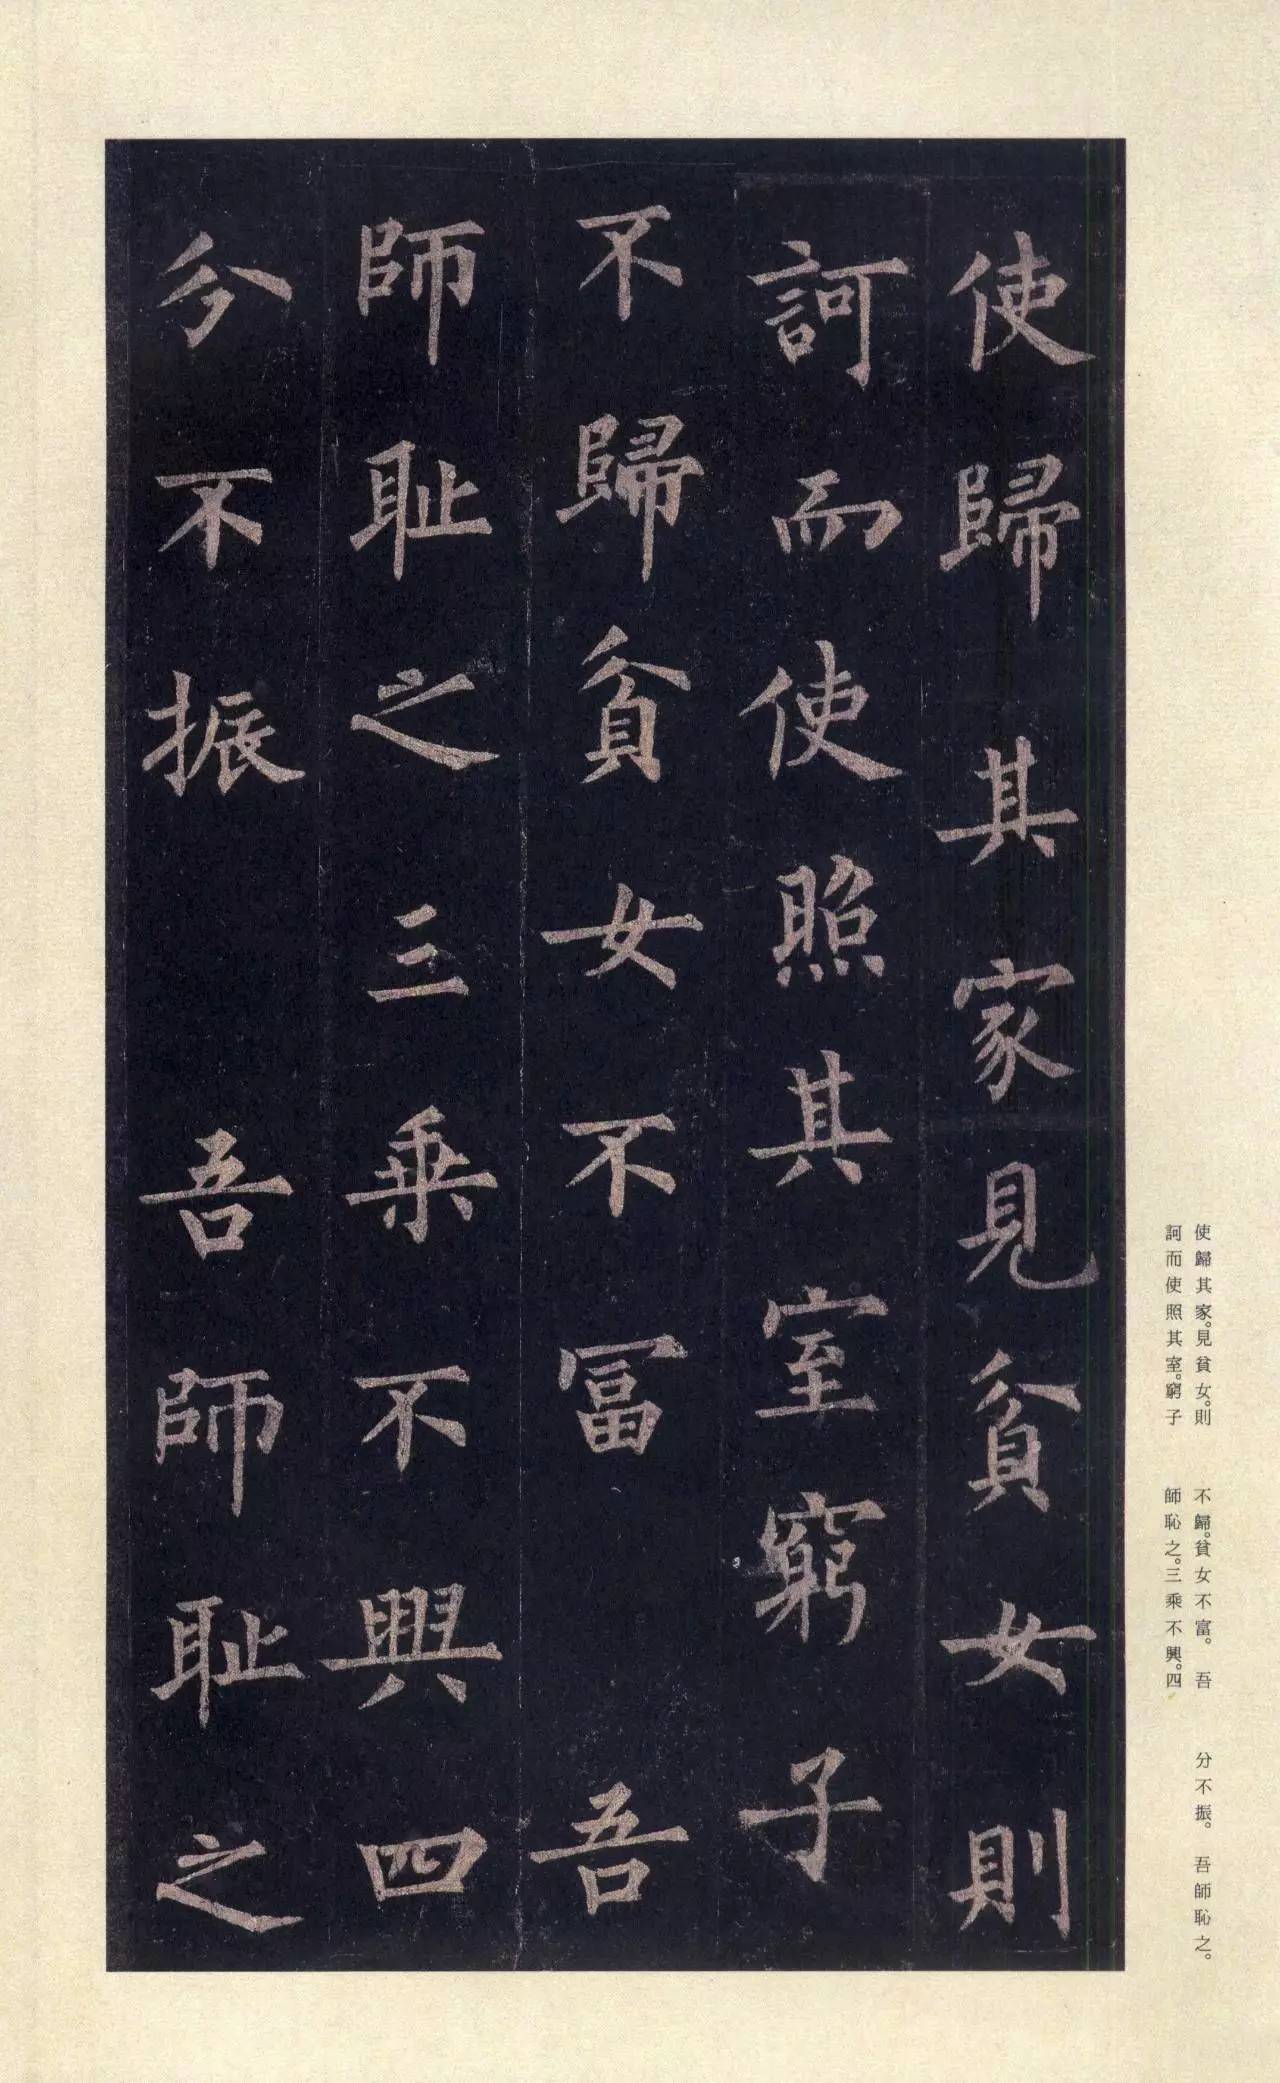 使歸其家見貧女則
訶而使照其室窮子
不歸貧女不冨吾
師耻之三乗不興四
分不振吾師耻之
使歸其家。見貧女。則
訶而使照其室。窮子
不歸。貧女不富。吾
師恥之。三乘不興。四
分不振。吾師恥之。